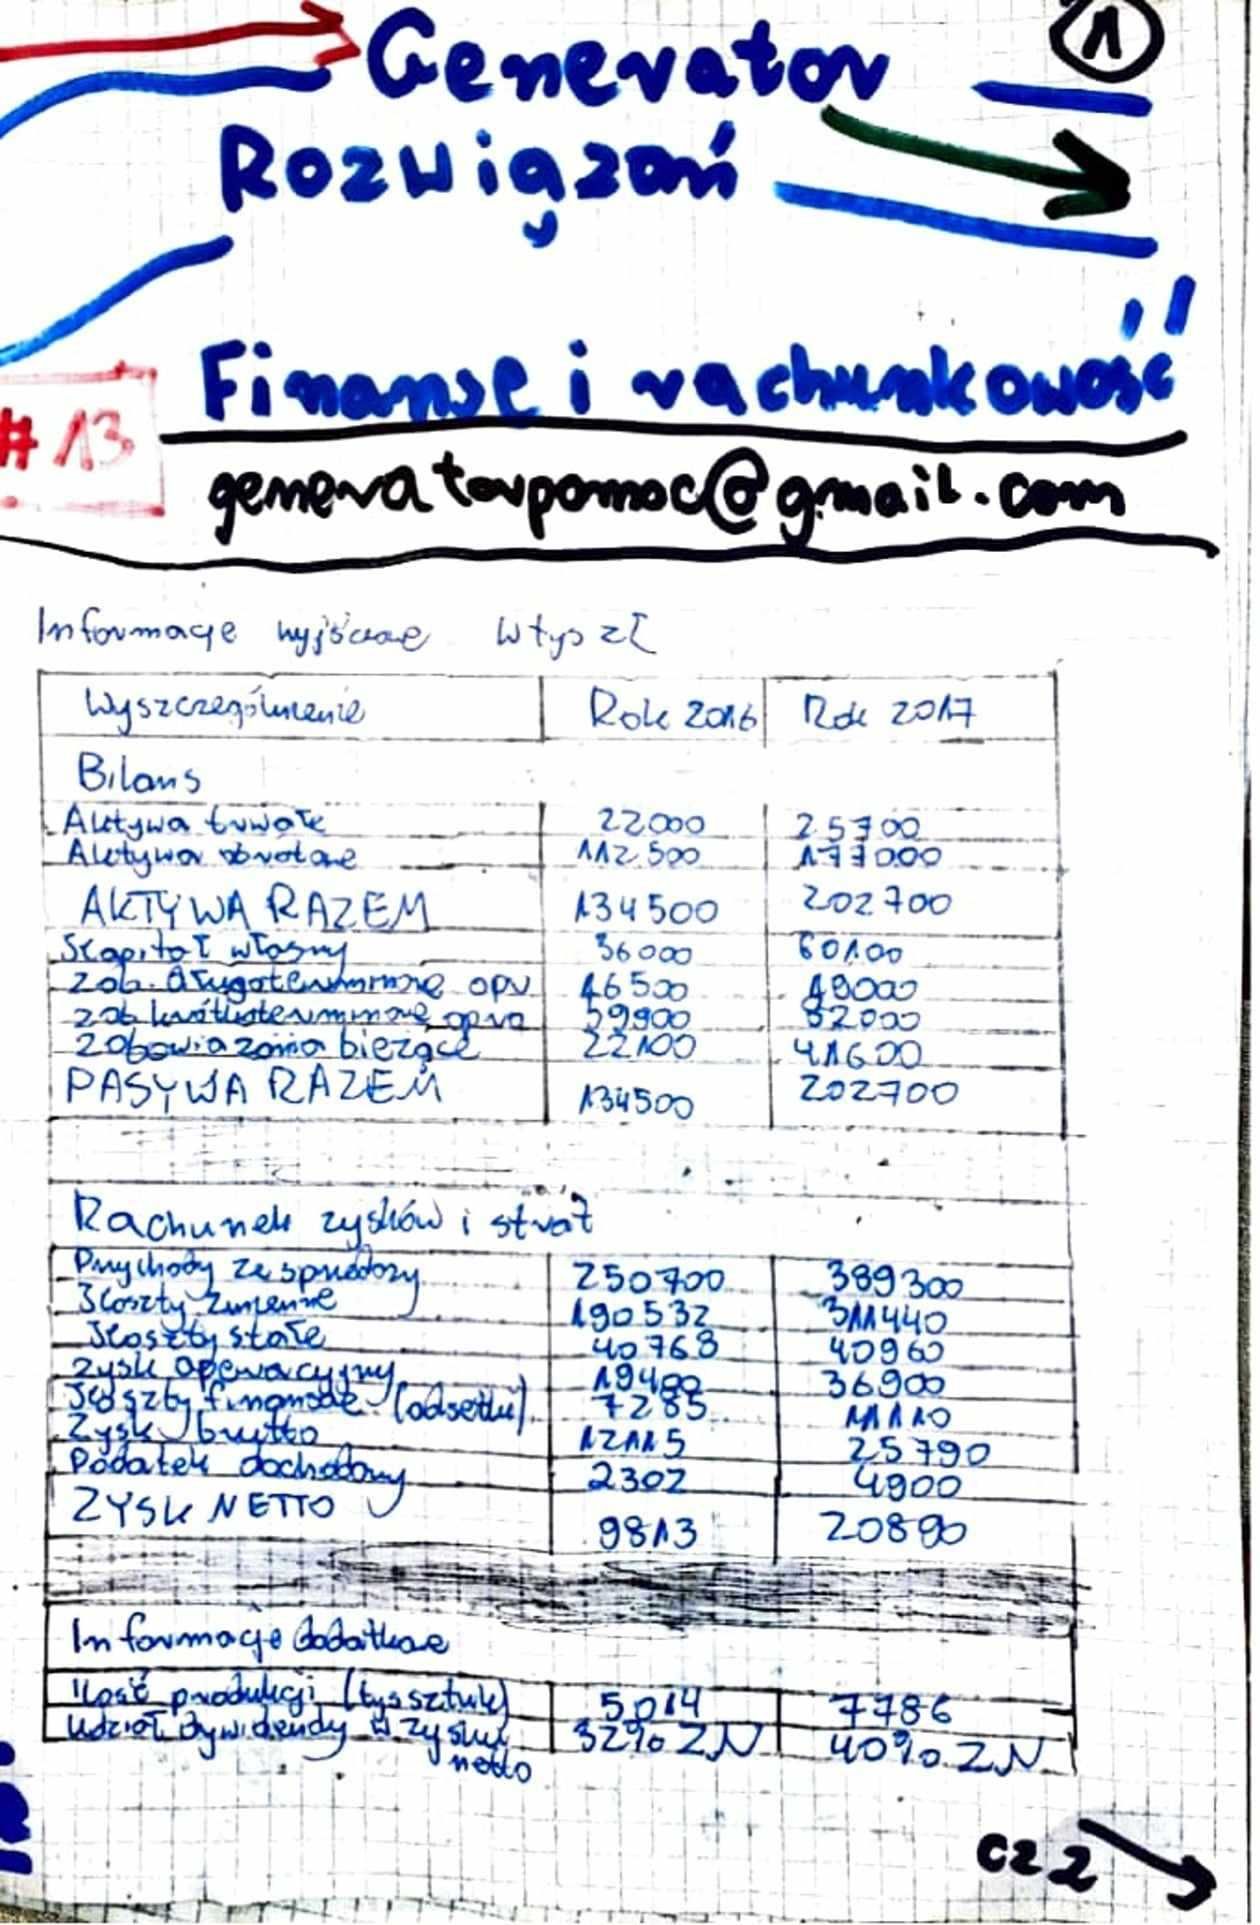 1
Generator
Rozwiązań
Finanse i rachunkowość
#13
generatorpomoc@gmail.com
Informacje wyjściowe w tys zł
Wyszczególnienie Rok 2016 Rok 2017
Bilans
Aktywa trwałe 22000 25700
Aktywa obrotowe 112500 177000
AKTYWA RAZEM 134500 202700
Kapitał własny 36000 60100
zob. długoterminowe opr 16500 49000
zob krótkoterminowe opro 59900 52000
zobowiązania bieżące 22100 41600
PASYWA RAZEM 134500 202700
Rachunek zysków i strat
Przychody ze sprzedaży 250700 389300
Koszty zmienne 190532 311440
Koszty stałe 40768 40960
zysk operacyjny 19400 36900
Koszty finansowe (odsetki) 7285 11110
Zysk brutto 12115 25790
Podatek dochodowy 2302 4900
ZYSK NETTO 9813 20890
Informacje dodatkowe
Ilość produkcji (tys sztuk) 5014 7786
Udział dywidendy w zysku 32% ZN 40% ZN
netto
cz 2